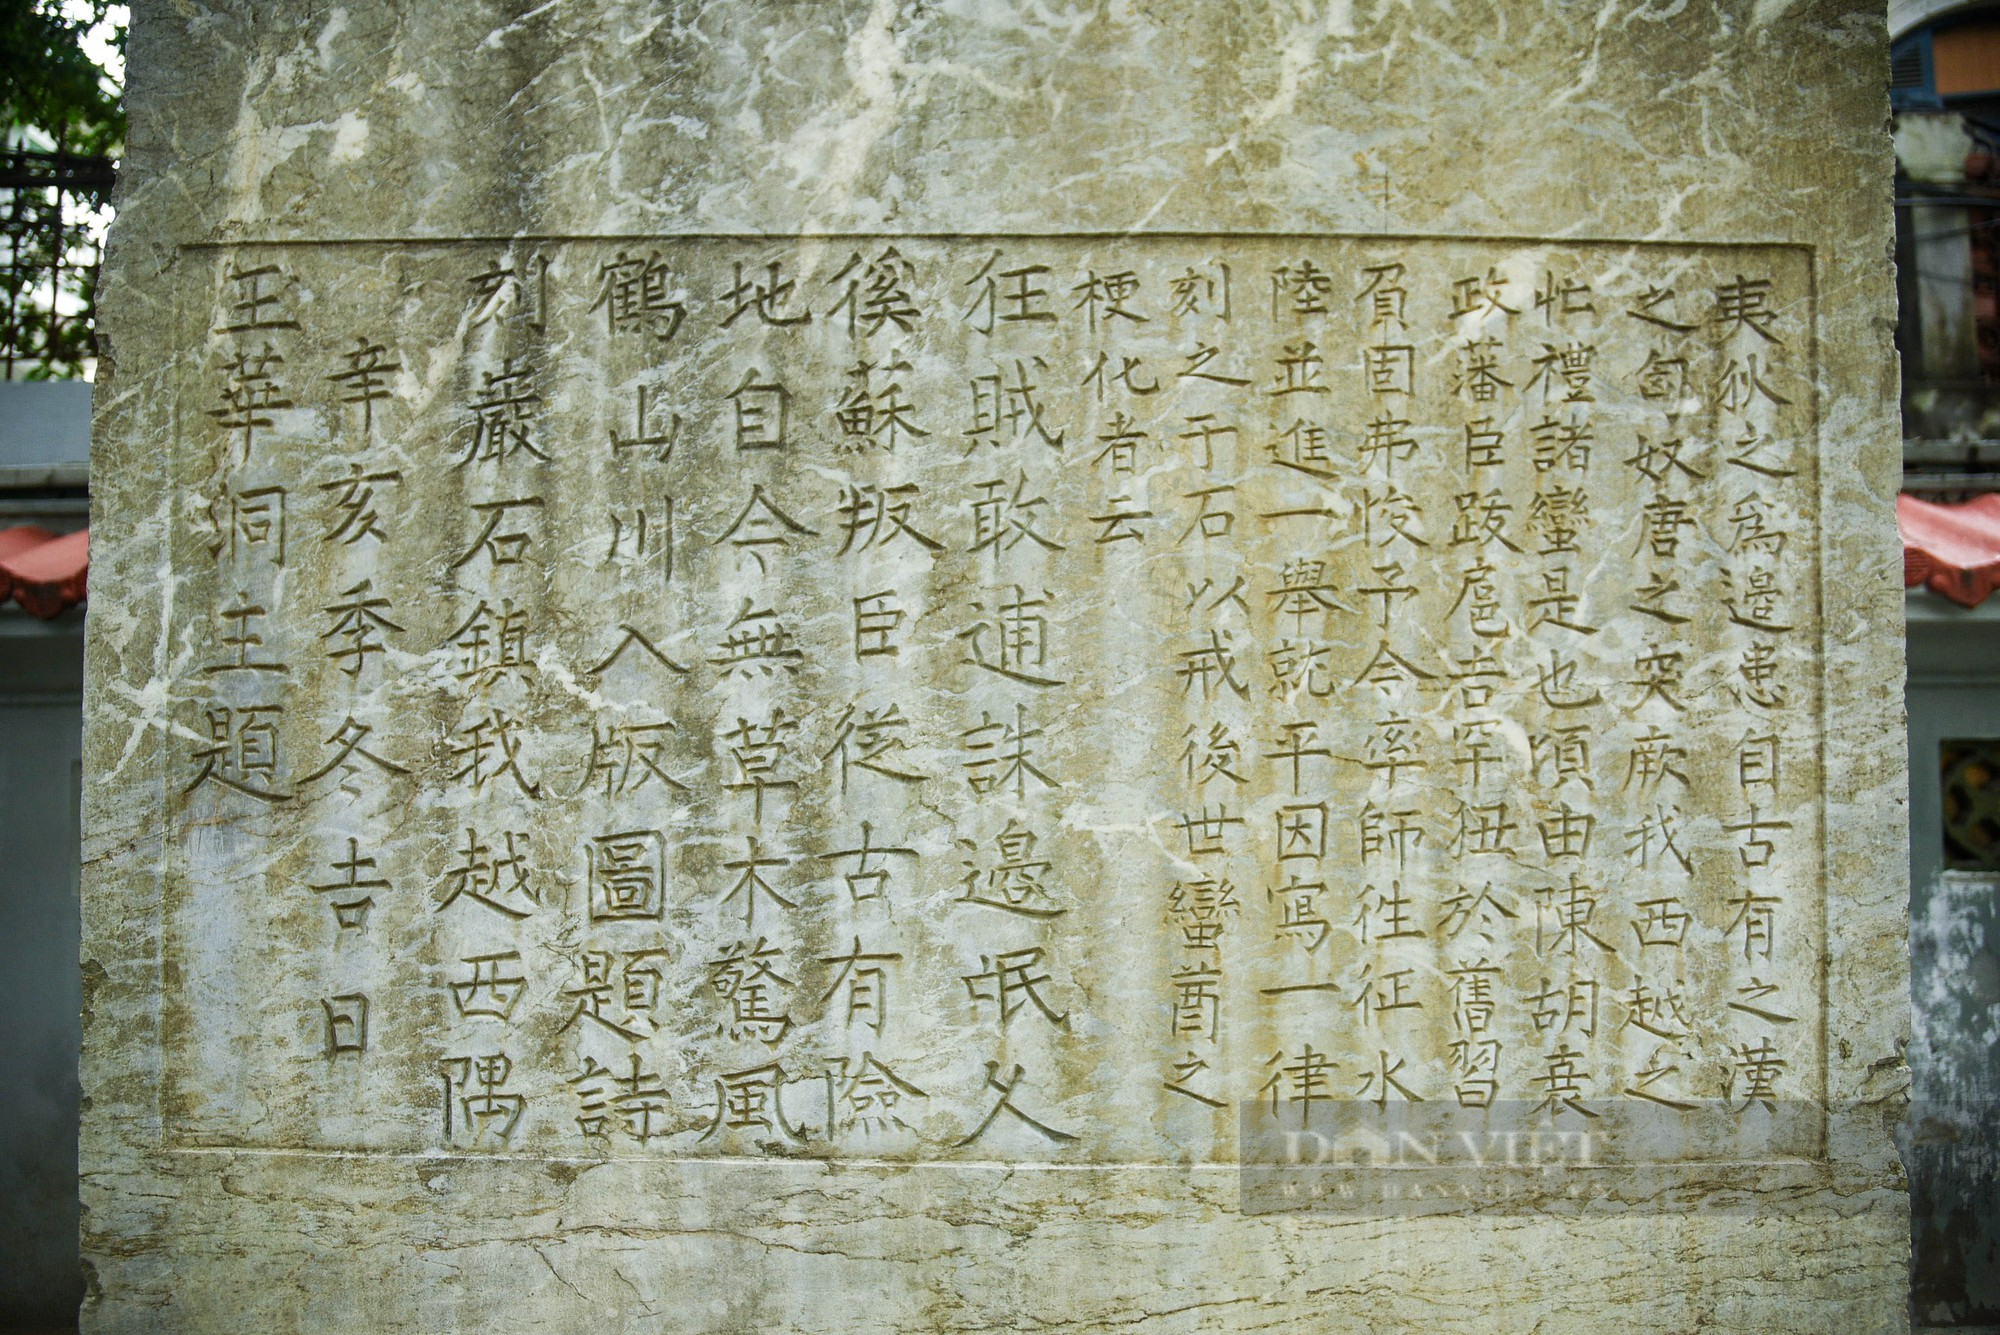 夷狄之爲邊患自古有之漢
之匈奴唐之突厥我西越之
忙禮諸蠻是也頃由陳胡衰
政藩臣跋扈吉罕狃於舊習
負固弗悛予今率師徃征水
陸並進一舉就平因寫一律
刻之于石以戒後世蠻酋之
梗化者云
狂賊敢逋誅邊氓久
徯蘇叛臣從古有險
地自今無草木驚風
鶴山川入版圖題詩
刻巖石鎮我越西隅
辛亥季冬吉日
玉華洞主題
DÂN VIỆT
WWW.DANVIET.VN